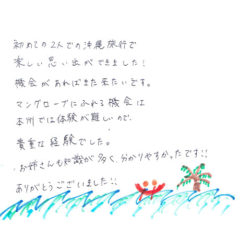 初めての2人での沖縄旅行で
楽しい思い出ができました!
機会があればまた来たいです。
マングローブにふれる機会は
本州では体験が難しいので、
貴重な経験でした。
お姉さんも知識が多く、分かりやすかったです!!
ありがとうございました!!